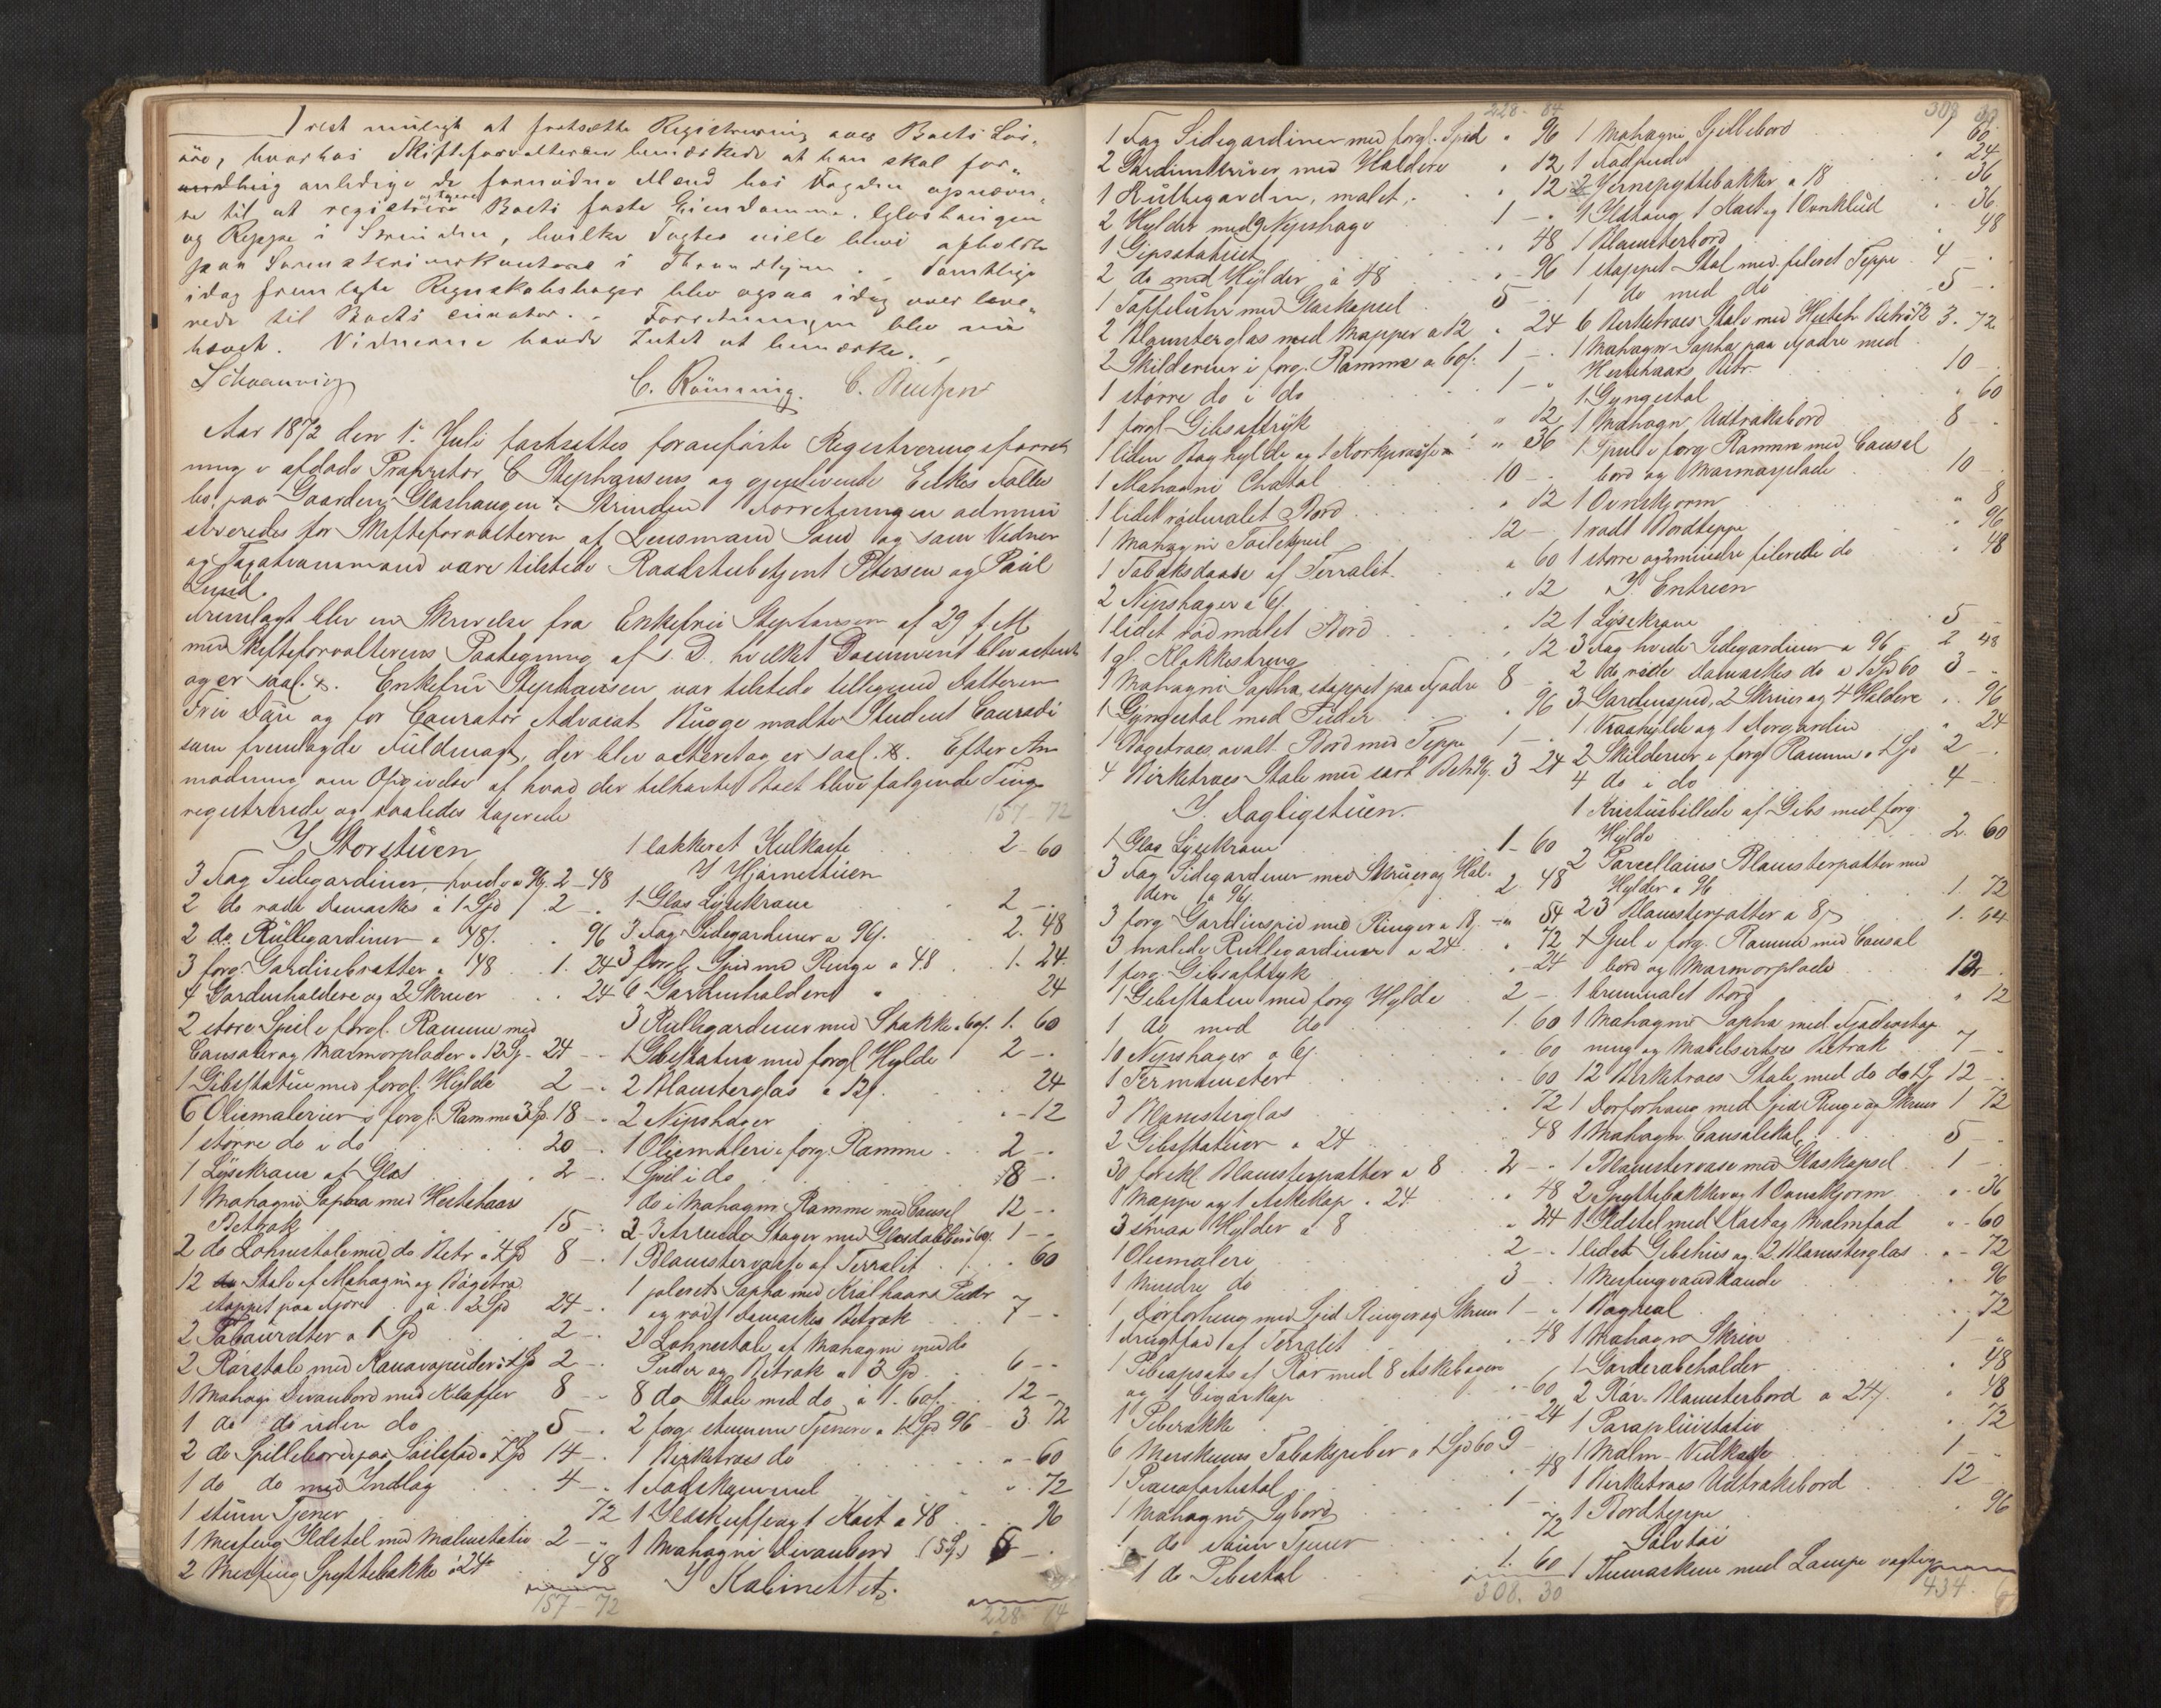 rest muligt at fortsætte Registrering over Boets Løs-
øre, hvorhos Skifteforvalteren bemærkede at han skal for-
anledige de fornødne Mænd hos Fogden opnævn-
te til at registrere og taxere Boets faste Eiendomme. Gloshaugen
og Reppe i Strinden, hvilke Tagter ville blive afholdte
paa Sorenskriverkontoret i Throndhjem. Samtlige
idag fremlagte Regnskabsbøger blev ogsaa idag over leve-
rede til Boets curator. Forretningen blev nu
hævet. Vidnerne havde Intet at bemærke.
C. Rønning. C. Bentzen
Aar 1872 den 1. Juli fortsattes foranførte Registreringsforret
ning i afdøde Proprietær C Stephansens og gjenlevende Enkes Fælles
bo paa Gaarden Gloshaugen i Strinden. Forretningen admini
streredes for Skifteforvalteren af Lensmand Sand og som Vidner
og Taxationsmænd vare tilstede Raadstubetjent Petersen og Paul
Lund.
Fremlagt blev en Skrivelse fra Enkefru Stephansen af 29 f. M.
med Skifteforvalterens Paategning af s. D. hvilket Document blev acteret
og er saal. Enkefru Stephansen var tilstede tilligemed Datteren
Fru Däe og for Curator Advocat Bugge mødte Student Conradi
som fremlagde Fuldmagt, der blev acteret og er saal. Efter An
modning om Opgivelse af hvad der tilhørte Boet bleve følgende Ting
registrerede og saaledes taxerede
I Storstuen
3 Fag Sidegardiner, hvide a 96 2-48
2 do røde Damaskes à 1 Spd 2 -
2 do Rullegardiner a 48 96
3 forg. Gardinbratter a 48 1. 24
4 Gardinholdere og 2 Skruer 24
2 store Speil i forgl. Ramme med
Consoler og Marmorplader a 12 Sp 24 -
1 Gibsstatue med forgl. Hylde 2 -
6 Oliemalerier i forgl. Ramme 3 Sp 18 -
1 større do i do 20 -
1 Lysekrone af Glas 2 -
1 Mahagni Sopha med Hestehaars
Betræk 15 -
2 do Lænestole med do Betr. a 4 Spd 8 -
12 do Stole af Mahagni og Bøgetræ
stoppet paa Fjære à 2 Spd 24 -
2 Tabouretter a 1 Spd 2 -
2 Rørstole med Kanavapuder a 1 Spd 2 -
1 Mahagni Divanbord med Klaffer 8 -
1 do do uden do 5 -
2 do Spilleborde paa Søilefod a 7 Spd 14 -
1 do do med Indlæg 4 -
1 stum Tjener 72
1 Messing Ildstel med Malmstativ 2 -
2 Messing Spyttebakke à 24 48
157 - 72
157 - 72
1 lakkeret Kulkasse 2-60
I Hjørnestuen
1 Glas Lysekrone 2 -
3 Fag Sidegardiner a 96 2. 48
3 forgl. Spid med Ringe a 48 1. 24
6 Gardinholdere 24
3 Rullegardiner med Stokke a 60 1. 60
1 Gibsstatue med forgl Hylde 2 -
2 Blomsterglas a 12 24
2 Nipshager 12
1 Oliemaleri i forg. Ramme 2 -
1 Speil i do 8 -
1 do i Mahagni Ramme med Consol 12 -
1 Blomstervase af Terralit 60
1 poleret Sopha med Krølhaars Puder
og rødt Damaskes Betræk 7 -
2 Lænestole af Mahagni med do
Puder og Betræk a 3 Sp. 6 -
8 do Stole med do à 1. 60 12 -
2 forg. stumme Tjenere a 1 Spd 96 3 72
1 Birketræs do 60
1 Fodskammel 72
1 Ildskuffe og 1 Kost a 48 96
1 Mahagni Divanbord (5 Sp) 5 -
I Kabinettet.
228 84
228 - 84
1 Fag Sidegardiner med forgl. Spid 96
2 Gardinskruer med Holdere 12
1 Rullegardin, malet, 12
2 Hylder med 2 Nipshage 1 -
1 Gipsstatuet 48
2 do med Hylder à 48 96
1 Taffeluhr med Glaskapsel 5 -
2 Blomsterglas med Mapper a 12 24
2 Skilderier i forg. Ramme a 60 1 -
1 større do i do 1 -
1 forgl. Gibsaftryk 12
1 liden Baghylde og 1 Korkpresse 36
1 Mahagni Chatol 10 -
1 lidet rødmalet Bord 12
1 Mahagni Toiletspeil 12 -
1 Tobaksdaase af Terralit. 60
2 Nipshager a 6 12
1 lidet rødmalet Bord 12
1 gl. Klokkestreng 12
1 Mahagni Sopha, stoppet paa Fjædre 8 -
1 Gyngestol med Puder 96
1 Bøgetræs ovalt Bord med Teppe 1 -
4 Birketræs Stole med sort Betr. 3 24
I Dagligstuen.
1 Glas Lysekrone 1-60
3 Fag Sidegardiner med Skruer og Hol-
dere a 96 2. 48
3 forg Gardinspid med Ringer a 18 54
3 malede Rullegardiner a 24 72
1 forg. Gibsaftryk 24
1 Gibsstatue med forg Hylde 2 -
1 do med do 1. 60
10 Nipshager a 6 60
1 Termometer 60
3 Blomsterglas 72
2 Gibsstatuer a 24 48
30 forskl. Blomsterpotter a 8 2 -
1 Mappe og 1 Askekop a 24 48
3 smaa Hylder a 8 24
1 Oliemaleri 2 -
1 Mindre do 3 -
1 Dørforhæng med Spid Ringer og Skruer 1 -
1 Frugtfad af Terralit 48
1 Pibeopsats af Rør med 8 Askebægere
og 1 Cigarkop 60
1 Piberække 24
6 Merskums Tobakspiber a 1 Spd 60 9 -
1 Pianofortestol 48
1 Mahagni Sybord 1 -
1 do stum Tjener 72
1 do Pibestol 1. 60
308. 30
308 30
1 Mahagni Spillebord 60
1 Fodpude 24
2 Jernspyttebakker a 18 36
1 Ildtang 1 Kost og 1 Ovnklud 36
1 Blomsterbord 48
1 stoppet Stol med fileret Teppe 4 -
1 do med do 5 -
6 Birketræs Stole med Hesteh. Betræk 3. 72
1 Mahagni Sopha paa Fjædre med
Hestehaars Betr. 10 -
1 Gyngestol 60
1 Mahagni Udtræksbord 8 -
1 Speil i forg. Ramme med Consol
bord og Marmorplade 10 -
1 Ovnskjærm 8
1 rødt Bordteppe 96
1 større og 2 mindre filerede do 48
I Entreen
1 Lysekrone 5 -
3 Fag hvide Sidegardiner a 96 2 48
2 do røde Damaskes do a 1 Spd 60 3 -
3 Gardinspid, 2 Skruer og 4 Holdere 96
1 Vraahylde og 1 Forgardin 24
2 Skilderier i forgl Ramme a 1 Spd 2 -
4 do i do 4 -
1 Kristusbillede af Gibs med forg.
Hylde 2. 60
2 Porcellains Blomsterpotter med
Hylder a 96 1. 72
23 Blomsterpotter a 8 1. 64
1 Speil i forg. Ramme med Consol
bord og Marmorplade 12 -
1 brunmalet Bord 12
1 Mahagni Sopha med Fjæderstop
ning og Betræk 7 -
12 Birketræs Stole med do do a 1 Sp 12 -
1 Dørforhæng med Spid Ringe og Skruer 1 72
1 Mahagni Consolskab 5 -
1 Blomstervase med Glaskapsel 1 -
2 Spyttebakker og 1 Ovnskjærm 36
1 Ildstel med Kost og Malmfod 60
1 lidet Gibshus og 2 Blomsterglas 72
1 Messingvandkande 96
1 Bogreol 72
1 Mahagni Skrin 1 -
1 Garderobeholder 48
2 Rør-Blomsterbord a 24 48
1 Paraplüistativ 72
1 Malm-Vedkasse 1 -
1 Birketræs Udtræksbord 12 -
1 Bordteppe 96
Sølvtøi
1 Themaskine med Lampe vægtig
434.